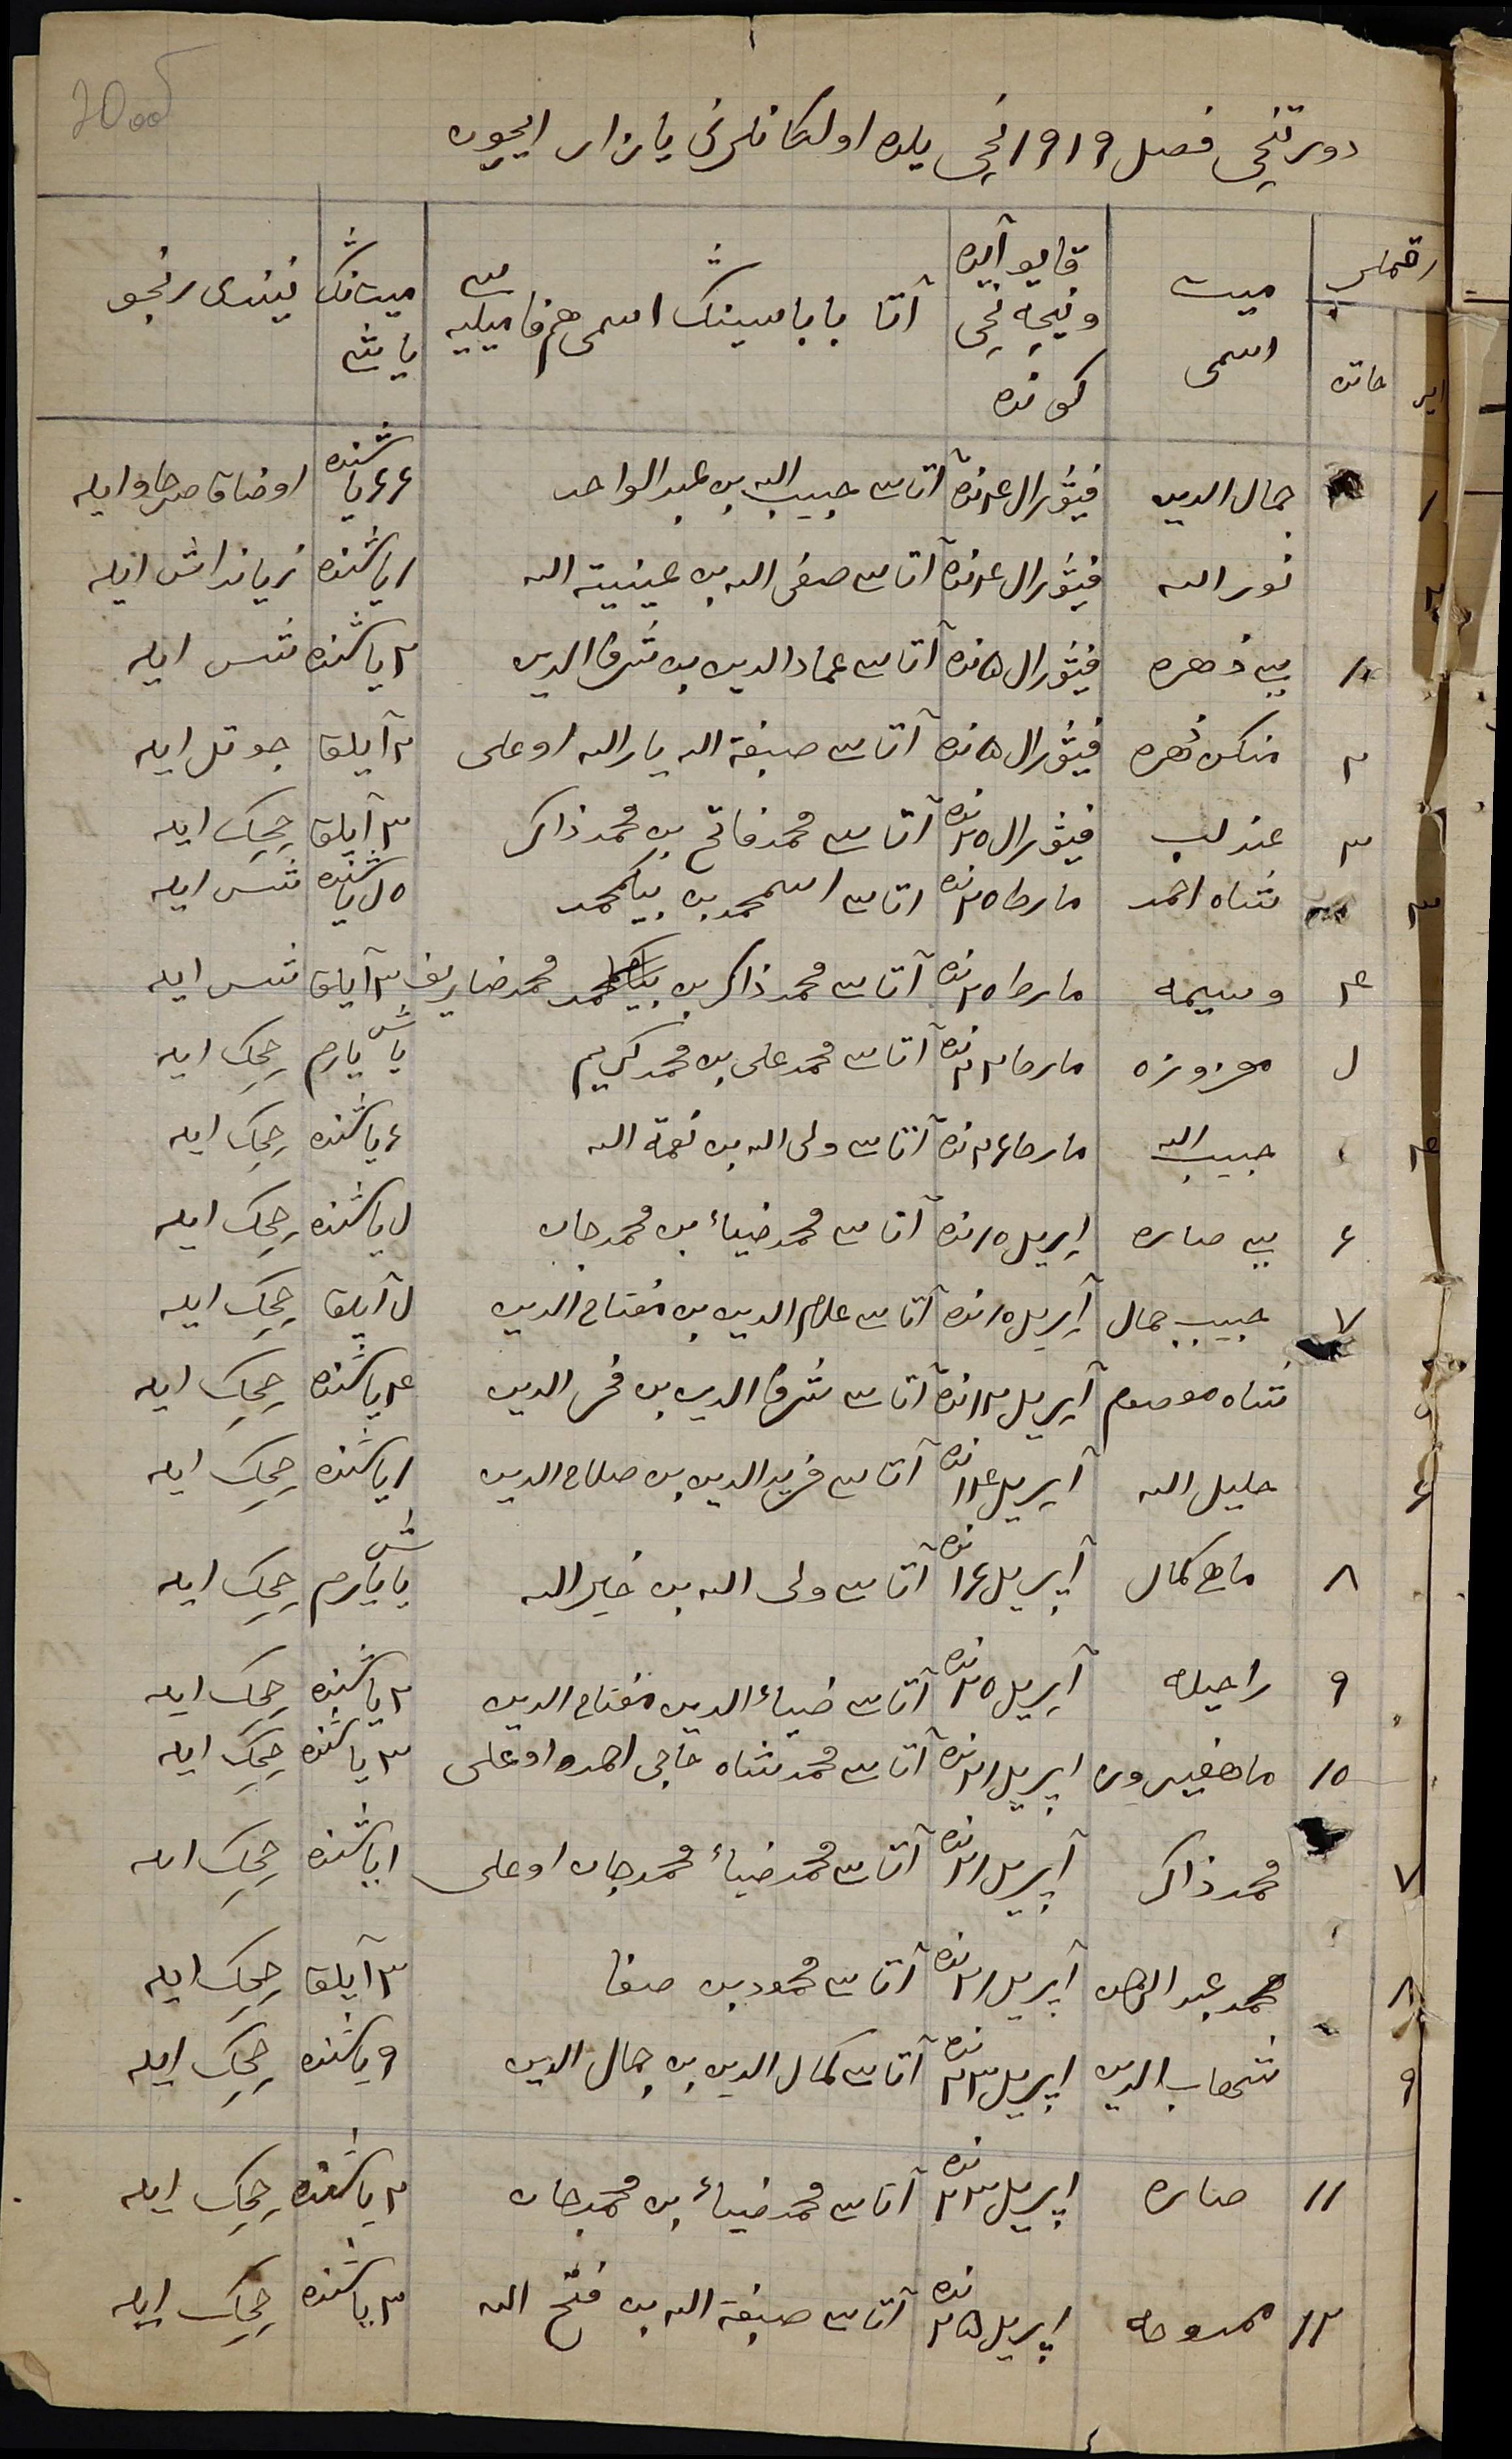 دورتنچی فصل ١٩١٩نچی یلده اولكانلرنی یازار ایچون
رقملر
ایر
خاتن
میت اسمی
قایو آیده ونیچه نچی كونده
آتا باباسینڭ اسمی هم فامیلیه سی
میتنڭ یاشی
نیندی رنجو
١ جمال الدین فیۋرال ٤نده آتاسی حبیب الله بن عبد الواحد ٤٤یاشنده ایله
٢ نور الله فیۋرال ٤نده آتاسی صفی الله بن ١یاشنده ایله
١ بی زهره فیۋرال ٥نده آتاسی عماد الدین بن شرف الدین ٢یاشنده شس ایله
٢ منكن زهره فیۋرال ٥نده آتاسی صبغة الله یار الله اوغلی ٢آیلق یوتل ایله
٣ عندلب فیۋرال ٢٥نده آتاسی محمد فاتح بن محمد ذاكر ٣آیلق چچك ایله
٣ شاه احمد مارط ٢٥نده اتاسی بن بیكمحمد یاشنده شس ایله
٤ وسیمه مارط ٢٥نده آتاسی محمد ذاكر بن محمد ضاریف ٣آیلق شس ایله
مارط ٢٢نده آتاسی محمد علی بن محمد كریم یاش یارم چچك ایله
٤ حبیب الله مارط ٢٤نده آتاسی ولی الله بن نعمة الله ٤یاشنده چچك ایله
٦ بی صاره اپریل ١٠نده آتاسی محمد ضیاء بن محمد جان یاشنده چچك ایله
٧ حبیب جمال آپریل ١٠نده آتاسی علام الدین بن مفتاح الدین آیلق چچك ایله
شاه معصوم آپریل ١٢نده آتاسی شرف الدین بن فخر الدین ٤یاشنده چچك ایله
٦ خلیل الله آپریل ١٤نده آتاسی فرید الدین بن صلاح الدین ١یاشنده چچك ایله
٨ ماه كمال آپریل ١٤نده آتاسی ولی الله بن خیر الله یاش یارم چچك ایله
٩ راحیله آپریل ٢٠نده آتاسی ضیاء الدین مفتاح الدین ٢یاشنده چچك ایله
١٠ ماهفیروزه اپریل ٢١نده آتاسی محمد شاه حاجی احمد اوغلی ٣یاشنده چچك ایله
٧ محمد ذاكر آپریل ٢١نده آتاسی محمد ضیاء محمد جان اوغلی ١یاشنده چچك ایله
٨ محمد عبد الرحمن آپریل ٢١نده آتاسی محمود بن صفا ٣آیلق چچك ایله
٩ شهاب الدین اپریل ٢٣نده آتاسی كمال الدین بن جمال الدین ٩یاشنده چچك ایله
١١ صاره اپریل ٢٣نده آتاسی محمد ضیاء بن محمد جان ٢یاشنده چچك ایله
١٢ ممدوحه اپریل ٢٥نده آتاسی صبغة الله بن فتح الله ٣یاشنده چچك ایله